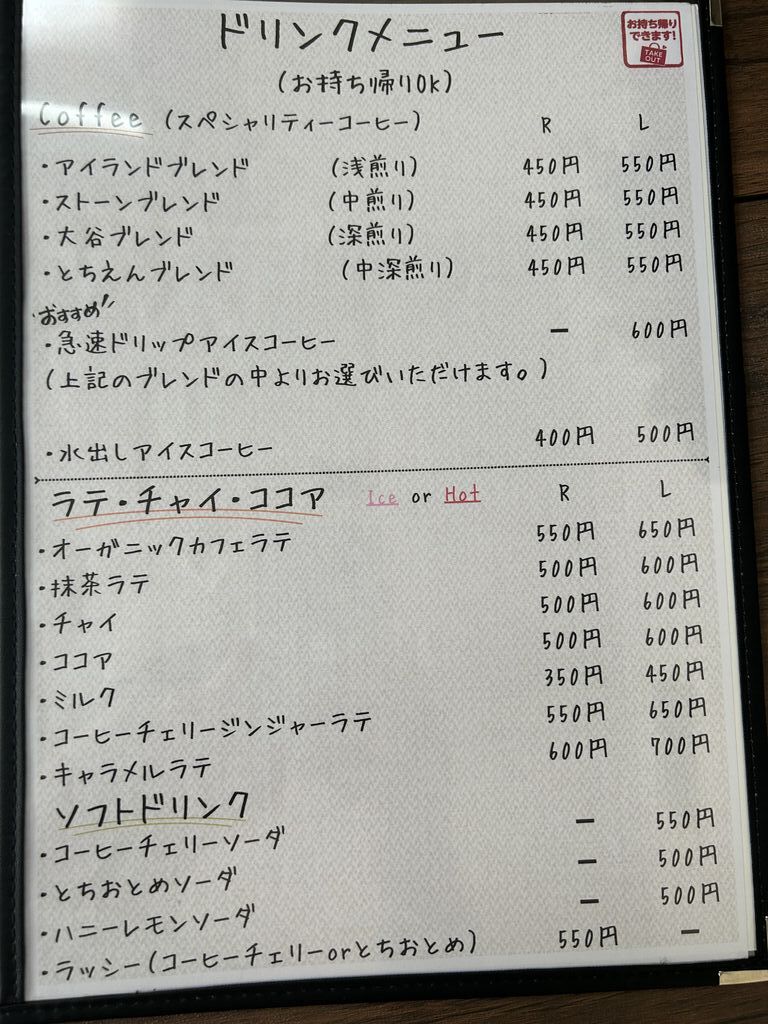 ドリンクメニュー
お持ち帰り
できます!
TAKE
OUT
(お持ち帰りOk)
Coffee (スペシャリティーコーヒー) R L
・アイランドブレンド (浅煎り) 450円 550円
・ストーンブレンド (中煎り) 450円 550円
・大谷ブレンド (深煎り) 450円 550円
・とちえんブレンド (中深煎り) 450円 550円
おすすめ!!
・急速ドリップアイスコーヒー ー 600円
(上記のブレンドの中よりお選びいただけます。)
・水出しアイスコーヒー 400円 500円
ラテ・チャイ・ココア Ice or Hot R L
・オーガニックカフェラテ 550円 650円
・抹茶ラテ 500円 600円
・チャイ 500円 600円
・ココア 500円 600円
・ミルク 350円 450円
・コーヒーチェリージンジャーラテ 550円 650円
・キャラメルラテ 600円 700円
ソフトドリンク
・コーヒーチェリーソーダ ー 550円
・とちおとめソーダ ー 500円
・ハニーレモンソーダ ー 500円
・ラッシー(コーヒーチェリーorとちおとめ) 550円 ー